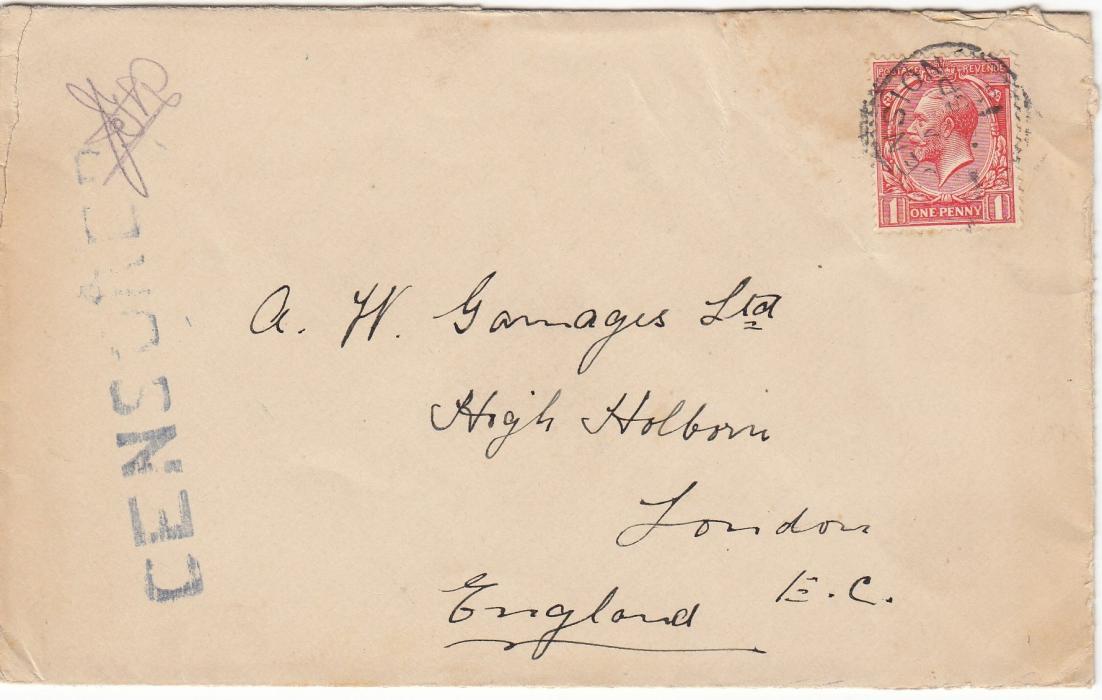 POSTAGE REVENUE
1 ONE PENNY 1
CENSORED
A. W. Gamages Ltd
High Holborn
London
E. C.
England